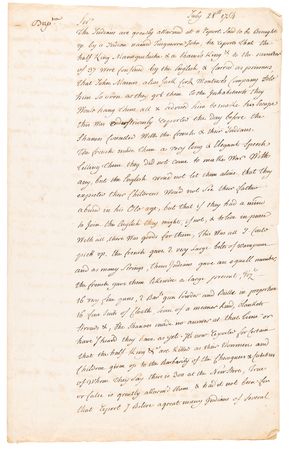 July 28th 1754
Sir
The Indians are greatly allarmed at a report Said to be brought
up by a Indian named Jngunerr John, he reports that the
half King Monaguhela & a Shanno King to the number
of 37 were Confined by the English & Carri'd as prisoners
that John Minor alias Jack Cock Montour's Company told
him So soon as they got them to the Inhabitants they
Would hang them all & advised him to make his Escape
this Was Reported the Day before the
Shanno Counciled With the french & their Indians.
The french made them a very long & Eloquent Speech
telling them they Did not come to make War With
any, but the English would not let them alone, that they
expected their Children Would not See their father
abused in his Old age, but that if they had a mind
to Join the English they might, if not, & to live in peace
With all there Was goods for them, this Was all I Could
pick up, the french gave 2 very large belts of Wampum
and as many Strings, their Indians gave an equall number
the french gave them likewise a large present, Viz.
16 very fine guns, 2 Barls gun powder and Bullets in proportion
16 fine Suits of Cloaths Some of a meaner kind, Blankets
Strouds & the Shanos made no answer at that time nor
have I heard they have as yet. It now Reported for Certain
that the half King &c. are killed & their Women and
Children given up to the Barbarity of the Cherokees & Cattabas
of Whom they Say there is 300 at the New Store, true
or false is greatly allarmed them & had it not been for
that report I believe a great many Indians of Several